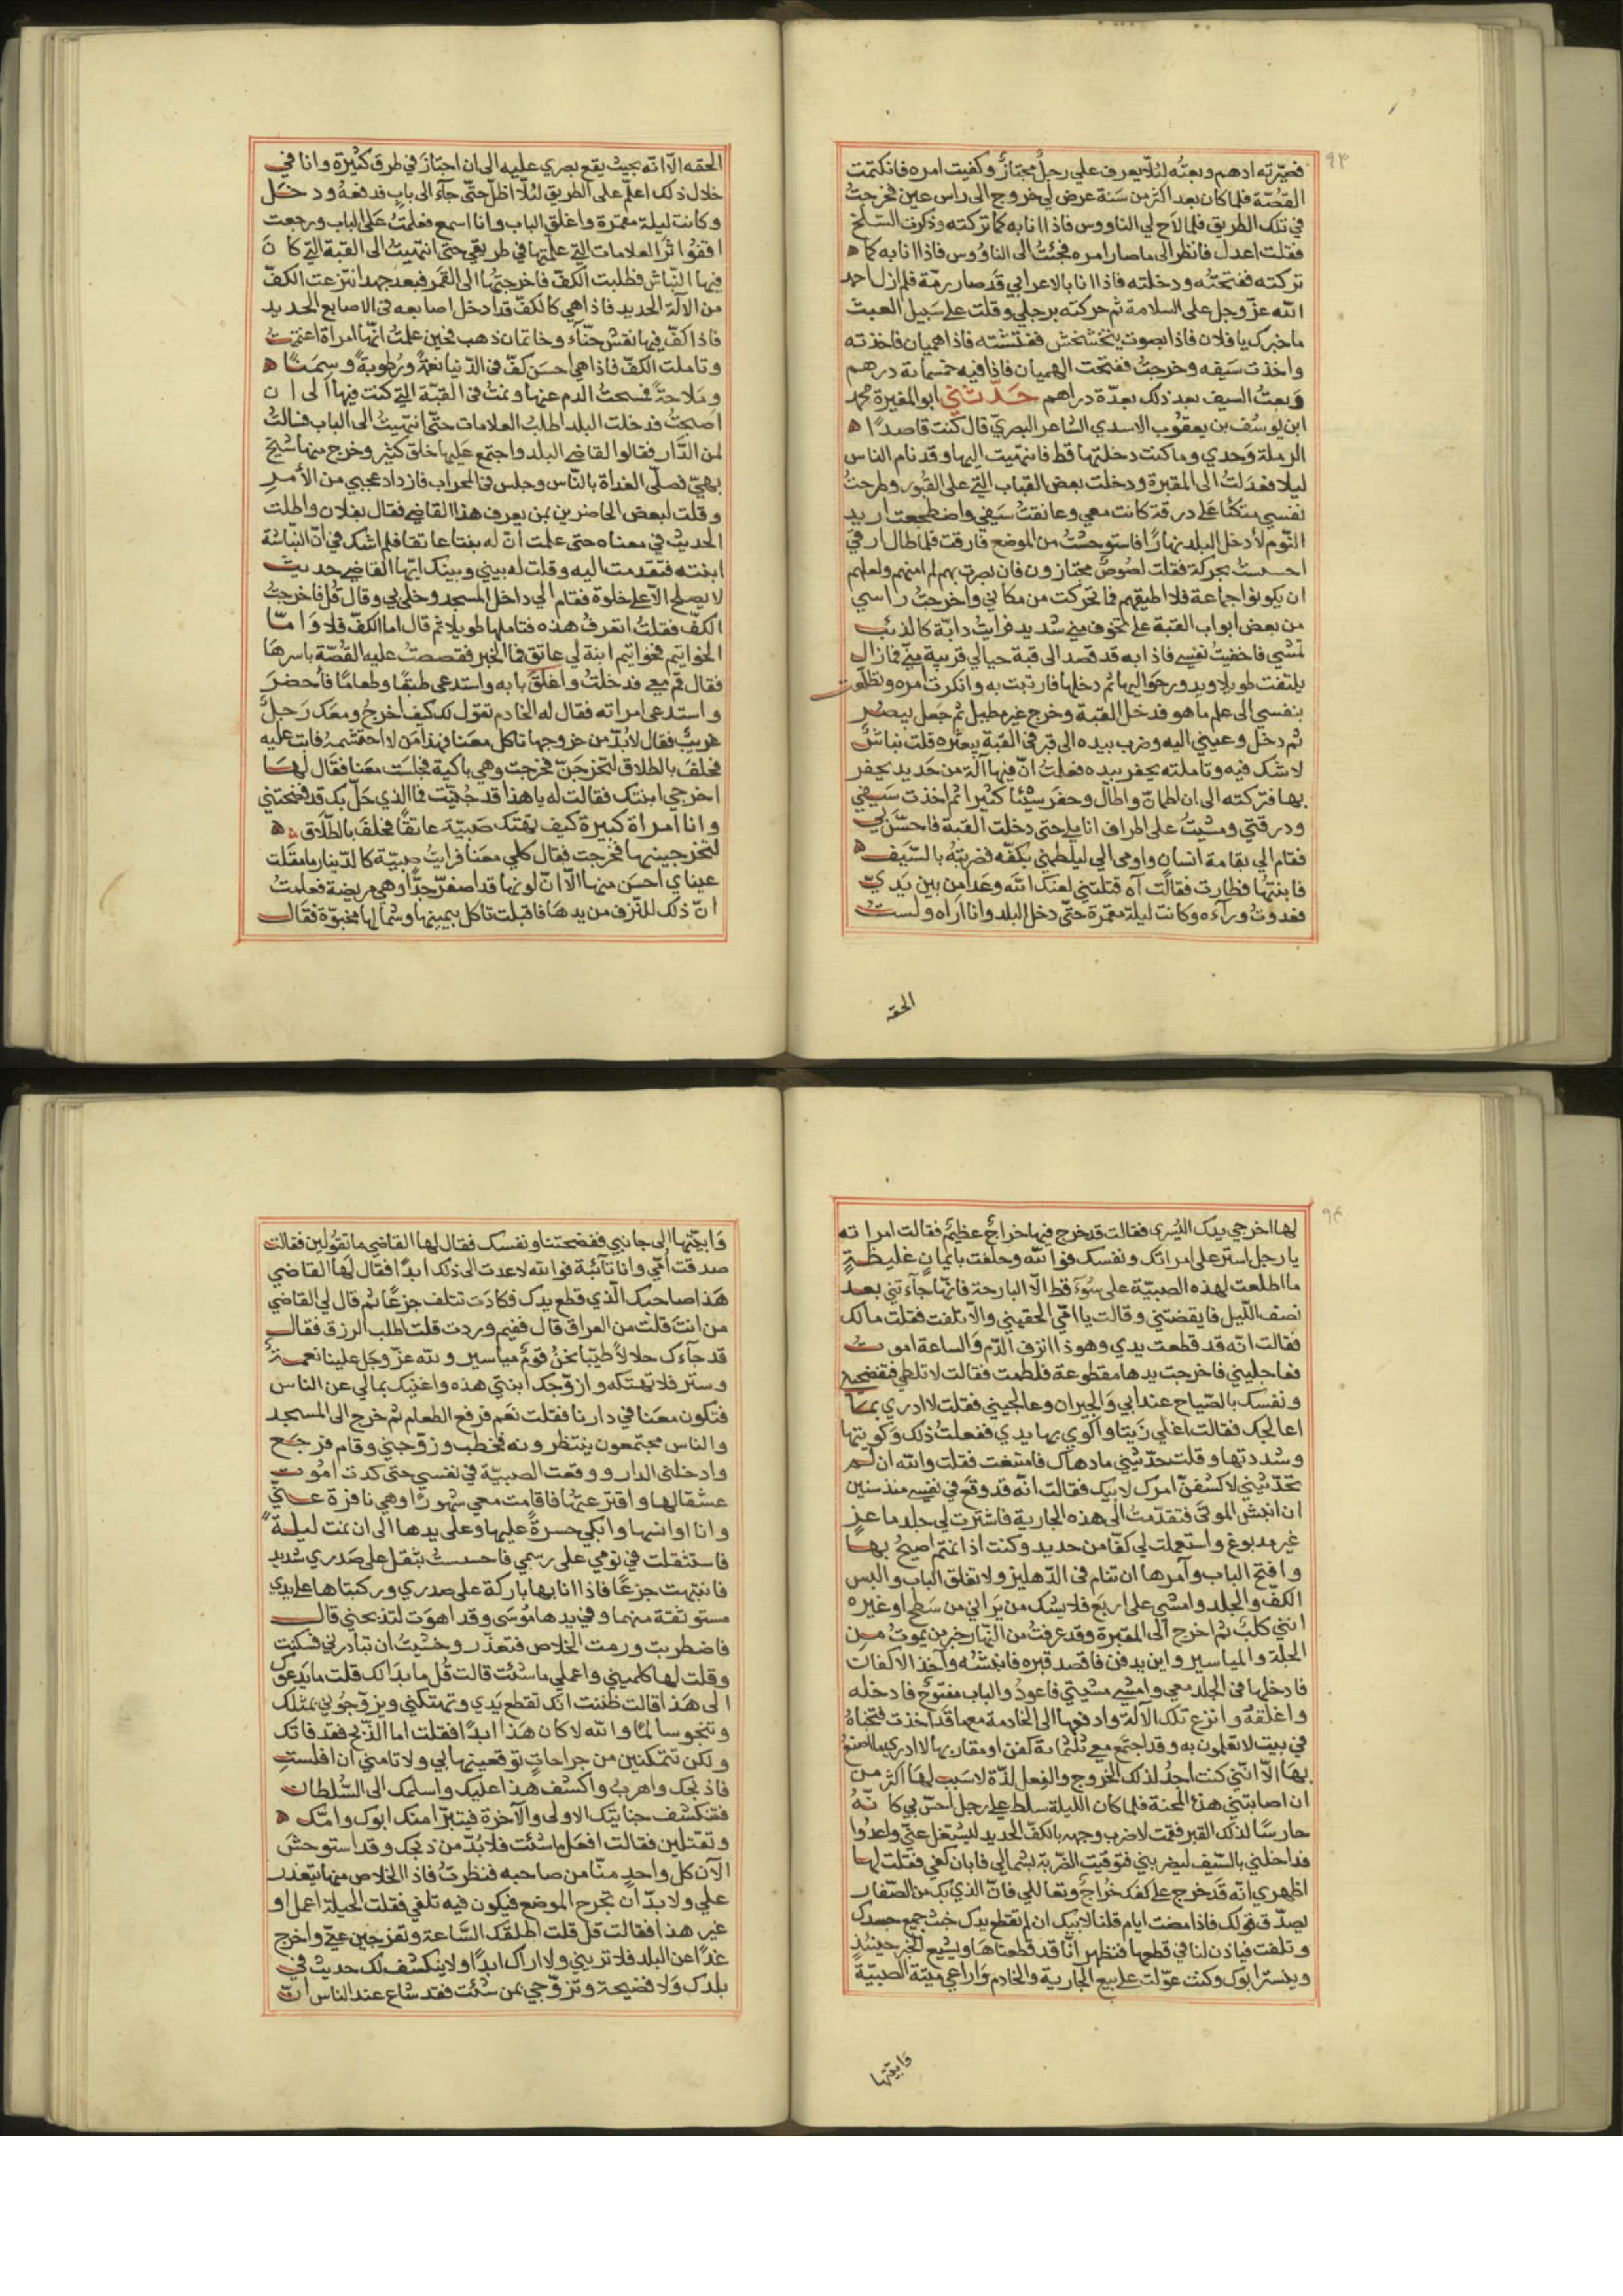 ٩٣
فصيّرته ادهم وبعتُه لئلّا يعرف علي رجلٌ مجتازٌ وكفيت امره فانكتمت
القصّة فلما كان بعد اكثر من سَنة عرض لي خروج الى راس عين فخرجتُ
في تلك الطريق فلما لاح لي الناووس فاذا انا به كما تركته وذكرت السّلخ
فقلت اعدل فانظر الى ما صار امره فجئتُ الى الناوُوس فاذا انا به كما
تركته ففتحتُه ودخلته فاذا انا بالاعرابي قَد صار رمّة فلم ازل احمد
الله عزّ وجل على السلامة ثم حركته برجلي وقلت على سَبيل العبث
ما خبرك يا فلان فاذا بصوت يتخشخش ففتشته فاذا هميان فاخذته
واخذت سَيفه وخرجتُ ففتحت الهميان فاذا فيه خمسمائة درهم
وبعتُ السيف بعد ذلك بعدّة دراهم حدّثني ابو المغيرة محمد
ابن يوسُف بن يعقُوب الاسدي الشاعر البصريّ قال كنت قاصدًا
الرملة وَحدي وما كنت دخلتها قط فانتهيت اليها وقد نام الناس
ليلا فعَدَلتُ الى المقبرة ودخلت بعض القباب التي على القبُور وطرحتُ
نفسي متكئًا على درقة كانت معي وعانقتُ سَيفي واضطجعت اريد
النّوم لأدخل البلد نهارًا فاستوحشتُ من الموضع فارقت فلما طال ارقي
احسستُ بحركة فقلت لصُوصٌ مجتازون فان بصرت بهم لم امنهم ولعلهم
ان يكونوا جماعة فلا اطيقهم فما تحركت من مكاني واخرجتُ راسي
من بعض ابواب القبة على تخوف مني شديد فرايتُ دابّة كالذئب
تمشي فاخفيتُ نفسي فاذا به قد قصد الى قبة حيالي قريبة منّي فما زال
يلتفت طويلا ويدور حواليها ثم دخلها فارتبت به وانكرت امره وتطلّعت
بنفسي الى علم ما هو فدخل القبة وخرج غير مطيل ثم جَعل يبصر
ثم دخل وعيني اليه وضرب بيده الى قبر في القبة يبعثره قلت نبّاش
لا شك فيه وتاملته يحفر بيده فعلمتُ انّ فيها آلة من حَديد يحفر
بها فتركته الى ان اطمانّ واطال وحفر شيئا كثيرا ثم اخذت سَيفي
ودرقتي ومشيتُ على اطراف اناملي حتى دخلت القبة فاحسّ بي
فقام الي بقامة انسان واومى الي ليلطمني بكفّه فضربتُه بالسّيف
فابنتها وطارت فقالت آه قتلتني لعنك الله وعَدا من بين يَديّ
فعدوتُ ورآءه وكانت ليلة مقمرة حتّى دخل البلد وانا اراه ولستُ
الحقه
الحقه الّا انّه بحيث يقع بصري عليه الى ان اجتازَ في طرق كثيرة وانا في
خلال ذلك اعلّم على الطريق لئلّا اظلّ حتّى جآء الى باب فدفعهُ ودخَل
وكانت ليلة مقمرة واغلق الباب وانا اسمع فعلّمتُ على الباب ورجعت
اقفوُا ثر العلامات التي علّمتها في طريقي حتى انتهيتُ الى القبة التي كان
فيها النّباش فطلبت الكفّ فاخرجتُها الى القمر فبعد جهد انتزعت الكفّ
من الآلة الحديد فاذا هي كالكفّ قد ادخل اصابعه في الاصابع الحديد
فاذا كفّ فيها نقش حنّاء وخاتمان ذهب فحين علمتُ انّها امراة اغتممتُ
وتاملت الكفّ فاذا هي احسَن كفّ في الدّنيا نعمةً ورُطوبةً وسِمَنًا
ومَلاحةً فمسحتُ الدم عنها ونمتُ في القبّة التي كنت فيها الى ان
اصبحتُ فدخلت البلد اطلب العلامات حتّى انتهيتُ الى الباب فسالتُ
لمن الدّار فقالوا لقاضي البلد واجتمع عَليها خلق كثير وخرج منها شيخ
بهيّ فصلّى الغداة بالنّاس وجلس في المحراب فازداد عجبي من الأمر
وقلت لبعض الحاضرين بمن يعرف هذا القاضي فقال بفلان واطلت
الحديث في معناه حتى علمت انّ له بنتا عاتقا فلم اشك في انّ النبّاشة
ابنته فتقدمت اليه وقلت له بيني وبينك ايّها القاضي حديث
لا يصلح الّا على خلوة فقام الي داخل المسجد وخلى بي وقال قُل فاخرجتُ
الكفّ فقلتُ اتعرفُ هذه فتاملها طويلا ثم قال اما الكفّ فلا وَامّا
الخواتيم فخواتيم ابنة لي عاتق فما الخبر فقصصتُ عليه القصّة باسرها
فقال قم معي فدخلتُ واغلق بابه واستدعى طبقًا وطعامًا فأحضرَ
واستدعى امراته فقال له الخادم تقول لك كيف اخرجُ ومعَك رَجلٌ
غريبٌ فقال لابُدّ من خروجها تاكل معَنا فهذا مَن لا احتشمهُ فابت عليه
فحلفَ بالطلاق لتخرجَنّ فخرجت وهي باكية فجلسَت معَنا فقال لها
اخرجي ابنتك فقالت له يا هذا قد جُنِنت فما الذي حَلّ بك قد فضحتني
وانا امراة كبيرة كيف تهتك صَبيّة عاتقًا فحلفَ بالطّلاق
لتخرجينها فخرجت فقال كلي معَنا فرايتُ صبيّة كالدّينار ما مقَلت
عيناي احسَن منها الّا انّ لونها قد اصفرّ جدًّا وهي مريضة فعلمتُ
انّ ذلك للنّزف من يدهَا فاقبلت تاكل بيمينها وشمالها مخبوّة فقال
٩٤
لها اخرجي يدك اليُسرى فقالت قد خرج فيها خراجٌ عظيمٌ فقالت امراته
يا رجل استر على امراتك ونفسك فوالله وحلفت بايمانٍ غليظةٍ
ما اطلعت لهذه الصبيّة على سُوَء قط الّا البارحة فانّها جآءتني بعد
نصف اللّيل فايقضتني وقالت يا امّي الحقيني والّا تلفت فقلت مالك
فقالت انّه قد قطعت يدي وهوذا انزف الدّم وَالساعة اموت
فعاجليني فاخرجت يدها مقطوعة فلطمت فقالت لا تلطمي فتفضحيني
ونفسك بالصّياح عند ابي وَالجيران وعالجيني فقلت لا ادري بما
اعالجك فقالت اغلي زَيتا واكوي بها يدي ففعلتُ ذلك وكويتها
وشددتها وقلت حدّثيني ما دهاك فامتنعت فقلت والله ان لم
تحدّثيني لاكشفنّ امرك لابيك فقالت انّه قد وقعَ في نفسي منذ سنين
ان انبش الموتى فتقدّمتُ الى هذه الجارية فاشترت لي جلد ماعز
غير مدبوغ واستعملت لي كفّا من حديد وكنت اذا نمتم اصيحُ بها
وافتح الباب وآمرها ان تنام في الدّهليز ولا تغلق الباب والبس
الكفّ والجلد وامشي على اربَع فلا يشك من يَراني من سَطح او غيره
انني كلبٌ ثم اخرج الى المقبرة وقد عرفتُ من النّهار خبر من يموتُ من
الجلة والمياسير واين يدفن فاقصد قبره فانبشُه وآخذ الاكفان
فادخلها في الجلد معي وامشي مشيتي فاعودُ والباب مفتوحٌ فادخله
واغلقهُ وانزع تلك الآلة وادفعها الى الخادمة مع ما قد اخذت فتخباهُ
في بيت لا تعلمون به وقد اجتمَع معي ثلثمائة كفن او مقاربها لا ادري ما اصنعُ
بها الّا انّني كنت اجدُ لذلك الخروج والفعل لذّة لا سَبب لها اكثر من
ان اصابتني هذه المحنة فلما كان الليلة سلط علي رجل احسّ بي كانّهُ
حارسًا لذلك القبر فقمت لاضرب وجهه بالكفّ الحديد ليشتغل عنّي واعدُوا
فداخلني بالسّيف ليضربني فتوقيت الضّربة بشمالي فابان كفي فقلت لها
اظهري انّه قَد خرج على كفك خُراجٌ وتعاللي فانّ الذي بك من الصّفار
يصدّق قولك فاذا مضت ايام قلنا لابيك ان لم تقطع يدك خبث جميع جسدك
وتلفت فياذن لنا في قطعها فنظهر انّا قد قطعناهَا ويشيع الخبر حينئذٍ
ويستر ابوك وكنتُ عوّلت على بيع الجارية والخادم وَاراعي مبيّة الصبيّة
وَابيّتها
وَابيّتها الى جانبي ففضحتنا ونفسك فقال لها القاضي ما تقُولين فقالت
صدقت اُمّي وانا تآئبة فوالله لا عدت الى ذلك ابدًا فقال لها القاضي
هَذا صاحبك الّذي قطع يدك فكادَت تتلف جزعًا ثم قال لي القاضي
من انتَ قلتُ من العراق قال ففيم وردت قلت اطلب الرزق فقال
قد جآءك حلالًا طيّبًا نحنُ قومٌ مياسير ولله عزّ وجَل علينا نعمةٌ
وستر فلا تهتكه وازوّجك ابنتي هذه واغنيك بمالي عن الناس
فتكون معَنا في دارنا فقلت نعَم فرفع الطعام ثم خرج الى المسجد
والناس مجتمعون ينتظرونه فخطب وزوّجني وقام فرجَع
وادخلني الدار ووقعت الصبيّة في نفسي حتى كدت اموت
عشقا لها واقترعتُها فاقامت معي شهورًا وهي نافرة عنّي
وانا اوانسها وابكي حسرةً عليها وعلى يدها الى ان نمت ليلةً
فاستثقلت في نومي على رسمي فاحسستُ بثقل على صَدري شديد
فانتبهت جزعًا فاذا انا بها باركة على صدري وركبتاها على يدي
مستوثقة منهما وفي يدها مُوسَى وقد اهوَت لتذبحني قال
فاضطربت ورمت الخلاص فتعذّر وخشيتُ ان تبادرني فسكنت
وقلت لها كلميني واعملي ما شئت قالت قُل ما بدَا لك قلت ما يَدعوك
الى هَذا قالت ظننت انّك تقطع يَدي وتهتكني ويزوّجُوني بمثلك
وتنجو سالمًا والله لا كان هَذا ابدًا فقلت اما الذّبح فقد فاتك
ولكن تتمكنين من جراحاتٍ توقعينها بي ولا تامني ان افلت
فاذبحك واهرب واكشف هذا عليك واسلمك الى السّلطان
فتنكشف جنايتك الاولى والآخرة فيتبرّا منك ابوك وامّك
وتقتلين فقالت افعَل ما شئت فلا بُدّ من ذبحك وقد استوحشَ
الآن كل واحدٍ منّا من صاحبه فنظرتُ فاذا الخلاص منها يتعذر
علي ولا بدّ ان تجرح الموضع فيكون فيه تلفي فقلت الحيلة اعمل او
غير هذا فقالت قل قلت اطلقَك السَّاعة وتفرجين عنّي واخرج
غدًا عن البلد فلا تريني ولا اراك ابدًا ولا ينكشف لك حديث في
بلدك وَلا فضيحة وتزوّجي بمن شئت فقد شاع عند الناس انّ